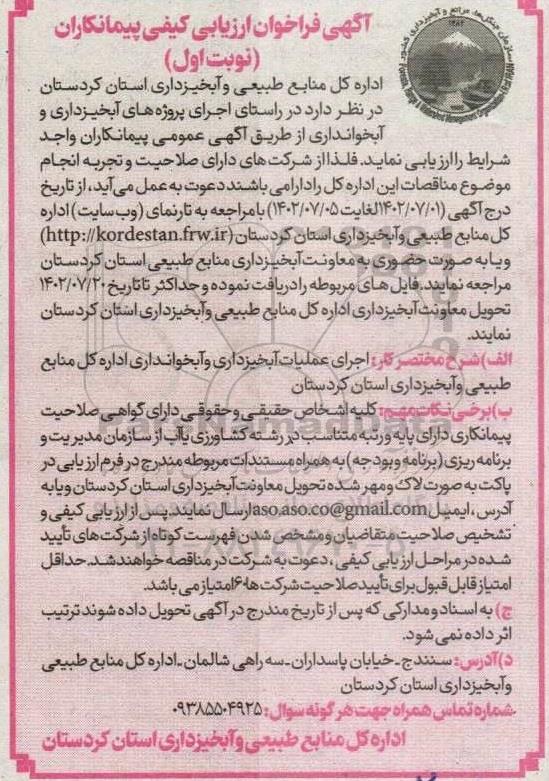 آگهی فراخوان ارزیابی کیفی پیمانکاران
(نوبت اول)
اداره کل منابع طبیعی و آبخیزداری استان کردستان
در نظر دارد در راستای اجرای پروژه های آبخیزداری و
آبخوانداری از طریق آگهی عمومی پیمانکاران واجد
شرایط را ارزیابی نماید. فلذا از شرکت های دارای صلاحیت و تجربه انجام
موضوع مناقصات این اداره کل را دارا می باشند دعوت به عمل می آید، از تاریخ
درج آگهی (۱۴۰۲/۰۷/۰۱ لغایت ۱۴۰۲/۰۷/۰۵) با مراجعه به تارنمای (وب سایت) اداره
کل منابع طبیعی و آبخیزداری استان کردستان (http://kordestan.frw.ir)
و یا به صورت حضوری به معاونت آبخیزداری منابع طبیعی استان کردستان
مراجعه نمایند. فایل های مربوطه را دریافت نموده و حداکثر تا تاریخ ۱۴۰۲/۰۷/۲۰
تحویل معاونت آبخیزداری اداره کل منابع طبیعی و آبخیزداری استان کردستان
نمایند.
الف) شرح مختصر کار: اجرای عملیات آبخیزداری و آبخوانداری اداره کل منابع
طبیعی و آبخیزداری استان کردستان
ب) برخی نکات مهم: کلیه اشخاص حقیقی و حقوقی دارای گواهی صلاحیت
پیمانکاری دارای پایه و رتبه متناسب در رشته کشاورزی یا آب از سازمان مدیریت و
برنامه ریزی (برنامه و بودجه) به همراه مستندات مربوطه مندرج در فرم ارزیابی در
پاکت به صورت لاک و مهر شده تحویل معاونت آبخیزداری استان کردستان و یا به
آدرس، ایمیل aso.aso.co@gmail.com ارسال نمایند. پس از ارزیابی کیفی و
تشخیص صلاحیت متقاضیان و مشخص شدن فهرست کوتاه از شرکت های تأیید
شده در مراحل ارزیابی کیفی، دعوت به شرکت در مناقصه خواهند شد. حداقل
امتیاز قابل قبول برای تأیید صلاحیت شرکت ها ۶۰ امتیاز می باشد.
ج) به اسناد و مدارکی که پس از تاریخ مندرج در آگهی تحویل داده شوند ترتیب
اثر داده نمی شود.
د) آدرس: سنندج - خیابان پاسداران - سه راهی شالمان - اداره کل منابع طبیعی
و آبخیزداری استان کردستان
شماره تماس همراه جهت هر گونه سوال: ۰۹۳۸۵۵۰۴۹۲۵
اداره کل منابع طبیعی و آبخیزداری استان کردستان